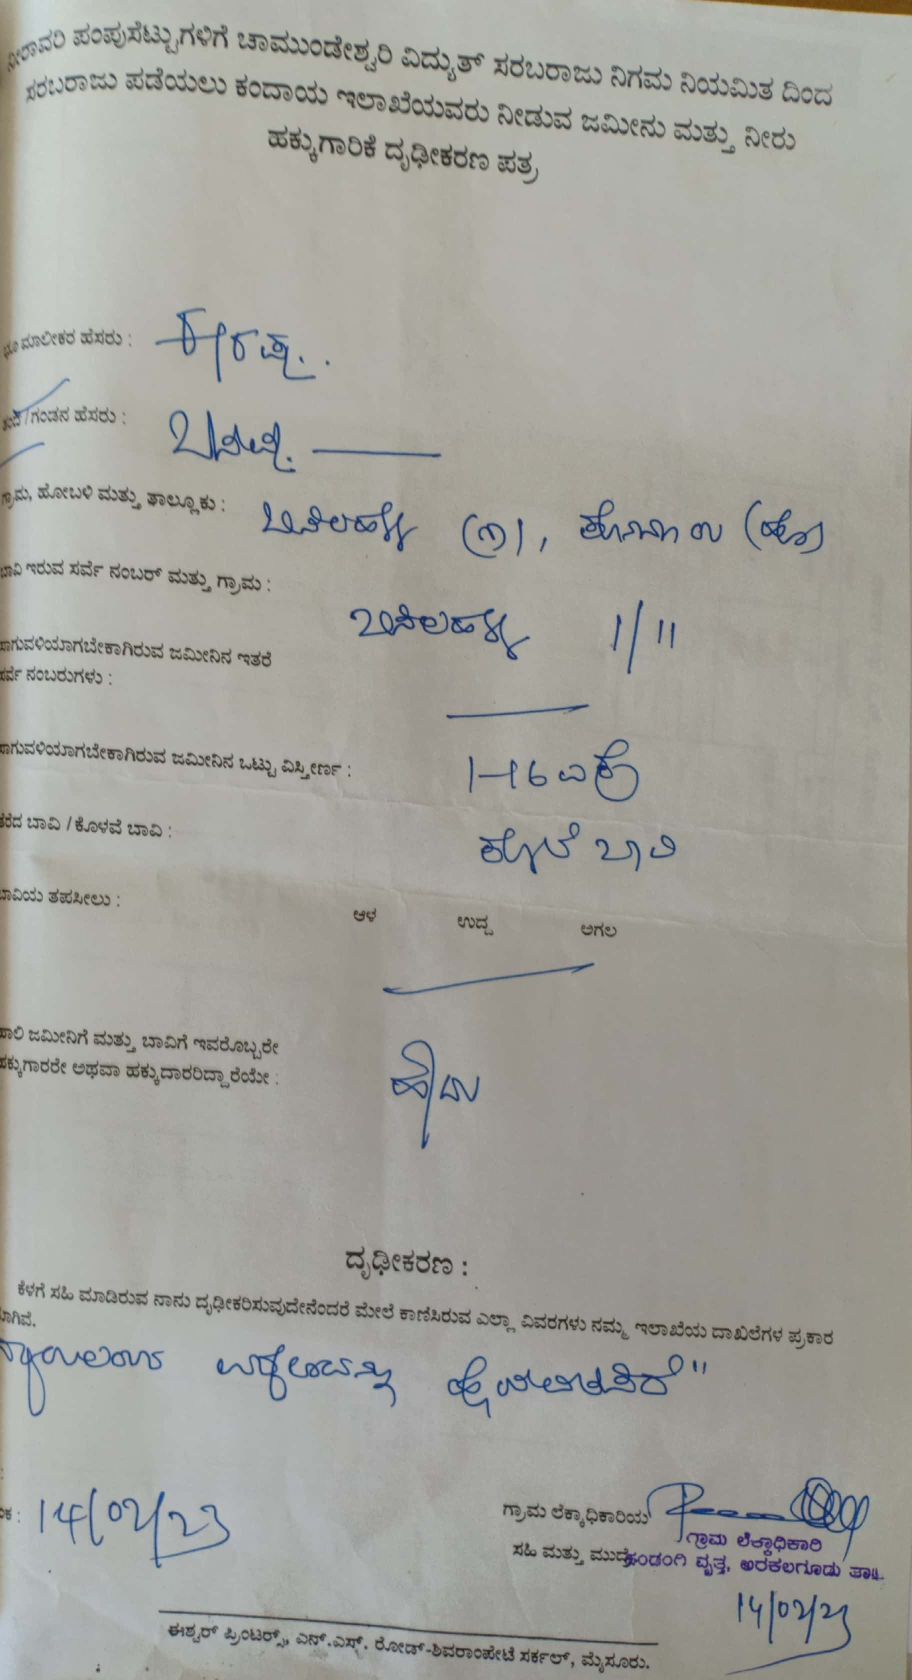 ನೀರಾವರಿ ಪಂಪುಸೆಟ್ಟುಗಳಿಗೆ ಚಾಮುಂಡೇಶ್ವರಿ ವಿದ್ಯುತ್ ಸರಬರಾಜು ನಿಗಮ ನಿಯಮಿತ ದಿಂದ
ಸರಬರಾಜು ಪಡೆಯಲು ಕಂದಾಯ ಇಲಾಖೆಯವರು ನೀಡುವ ಜಮೀನು ಮತ್ತು ನೀರು
ಹಕ್ಕುಗಾರಿಕೆ ದೃಢೀಕರಣ ಪತ್ರ
ಭೂ ಮಾಲೀಕರ ಹೆಸರು : ಈರಪ್ಪ.
/ಗಂಡನ ಹೆಸರು :
ಗ್ರಾಮ, ಹೋಬಳಿ ಮತ್ತು ತಾಲ್ಲೂಕು : (ಗ್ರಾ), ಕೊಣನೂರು (ಹೋ)
ಬಾವಿ ಇರುವ ಸರ್ವೆ ನಂಬರ್ ಮತ್ತು ಗ್ರಾಮ : 1/11
ಸಾಗುವಳಿಯಾಗಬೇಕಾಗಿರುವ ಜಮೀನಿನ ಇತರೆ
ಸರ್ವೆ ನಂಬರುಗಳು :
ಸಾಗುವಳಿಯಾಗಬೇಕಾಗಿರುವ ಜಮೀನಿನ ಒಟ್ಟು ವಿಸ್ತೀರ್ಣ : 1-16 ಎಕರೆ
ತೆರೆದ ಬಾವಿ / ಕೊಳವೆ ಬಾವಿ : ಕೊಳವೆ ಬಾವಿ
ಬಾವಿಯ ತಪಸೀಲು : ಆಳ ಉದ್ದ ಅಗಲ
ಹಾಲಿ ಜಮೀನಿಗೆ ಮತ್ತು ಬಾವಿಗೆ ಇವರೊಬ್ಬರೇ
ಹಕ್ಕುಗಾರರೇ ಅಥವಾ ಹಕ್ಕುದಾರರಿದ್ದಾರೆಯೇ : ಹೌದು
ದೃಢೀಕರಣ :
ಕೆಳಗೆ ಸಹಿ ಮಾಡಿರುವ ನಾನು ದೃಢೀಕರಿಸುವುದೇನೆಂದರೆ ಮೇಲೆ ಕಾಣಿಸಿರುವ ಎಲ್ಲಾ ವಿವರಗಳು ನಮ್ಮ ಇಲಾಖೆಯ ದಾಖಲೆಗಳ ಪ್ರಕಾರ
14/02/23
ಗ್ರಾಮ ಲೆಕ್ಕಾಧಿಕಾರಿಯ
ಗ್ರಾಮ ಲೆಕ್ಕಾಧಿಕಾರಿ
ಸಹಿ ಮತ್ತು ಮುದ್ರೆ
ವೃತ್ತ, ಅರಕಲಗೂಡು ತಾ||
14/02/23
ಈಶ್ವರ್ ಪ್ರಿಂಟರ್ಸ್, ಎನ್.ಎಸ್. ರೋಡ್-ಶಿವರಾಂಪೇಟೆ ಸರ್ಕಲ್, ಮೈಸೂರು.